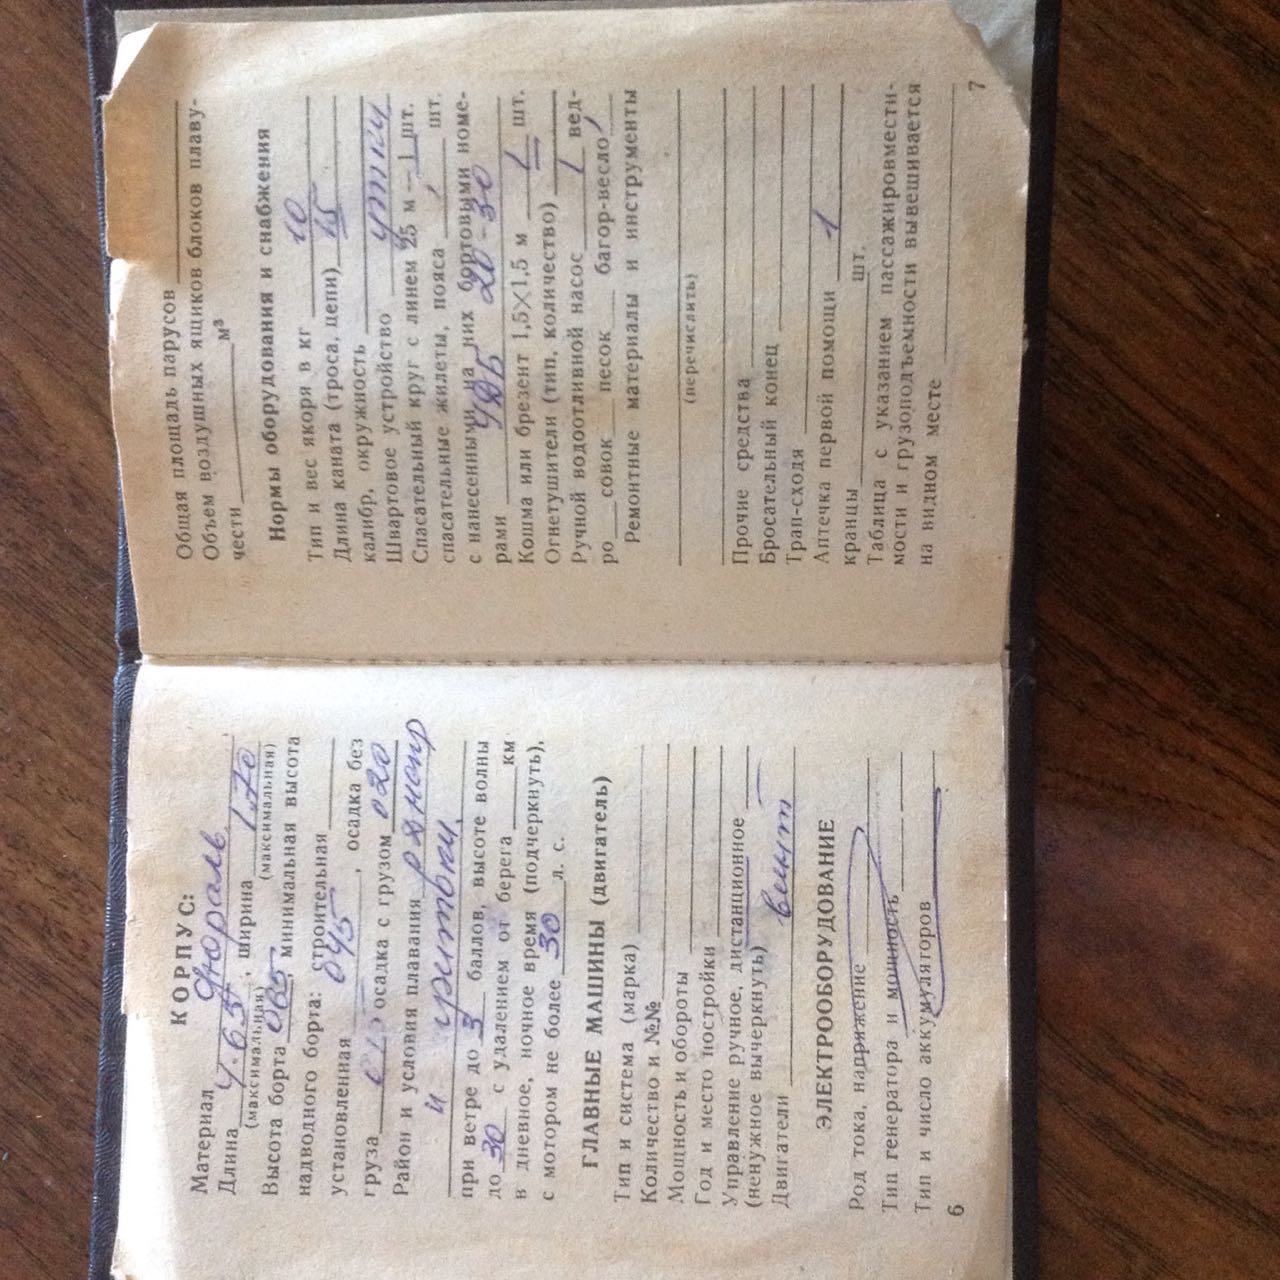 КОРПУС:
Материал дюраль
Длина 4.65, ширина 1.70
(максимальная) (максимальная)
Высота борта 065, минимальная высота
надводного борта: строительная
установленная 045, осадка без
груза осадка с грузом 020
Район и условия плавания
и притоки.
при ветре до 3 баллов, высоте волны
до 30 с удалением от берега км
в дневное, ночное время (подчеркнуть),
с мотором не более 30 л. с.
ГЛАВНЫЕ МАШИНЫ (двигатель)
Тип и система (марка)
Количество и №№
Мощность и обороты
Год и место постройки
Управление ручное, дистанционное
(ненужное вычеркнуть)
Двигатели винт
ЭЛЕКТРООБОРУДОВАНИЕ
Род тока, напряжение
Тип генератора и мощность
Тип и число аккумуляторов
6
Общая площадь парусов
Объем воздушных ящиков блоков плаву-
чести м³
Нормы оборудования и снабжения
Тип и вес якоря в кг 10
Длина каната (троса, цепи) 15
калибр, окружность
Швартовое устройство утки
Спасательный круг с линем 25 м — 1 шт.
спасательные жилеты, пояса шт.
с нанесенными на них бортовыми номе-
рами 20-30
Кошма или брезент 1,5×1,5 м 1 шт.
Огнетушители (тип, количество) 1
Ручной водоотливной насос 1 вед-
ро совок песок багор-весло 1
Ремонтные материалы и инструменты
(перечислить)
Прочие средства
Бросательный конец
Трап-сходя
Аптечка первой помощи 1
кранцы шт.
Таблица с указанием пассажировмести-
мости и грузоподъемности вывешивается
на видном месте
7